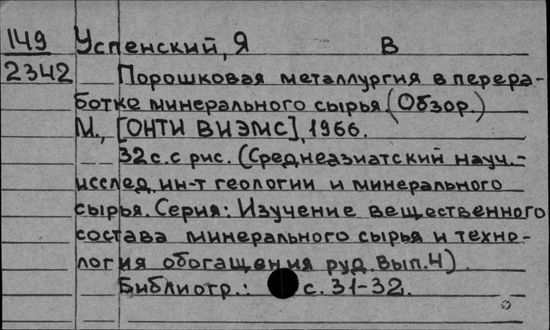 149 Успенский, Я В
2342 Порошковая металлургия в перера-
ботке минерального сырья (Обзор.)
М., [ОНТИ ВИЭМС], 1966.
32 с. с рис. (Среднеазиатский науч.-
исслед. ин-т геологии и минерального
сырья. Серия: Изучение вещественного
состава минерального сырья и техно-
логия обогащения руд. Вып. 4).
Библиотр.: с. 31-32.